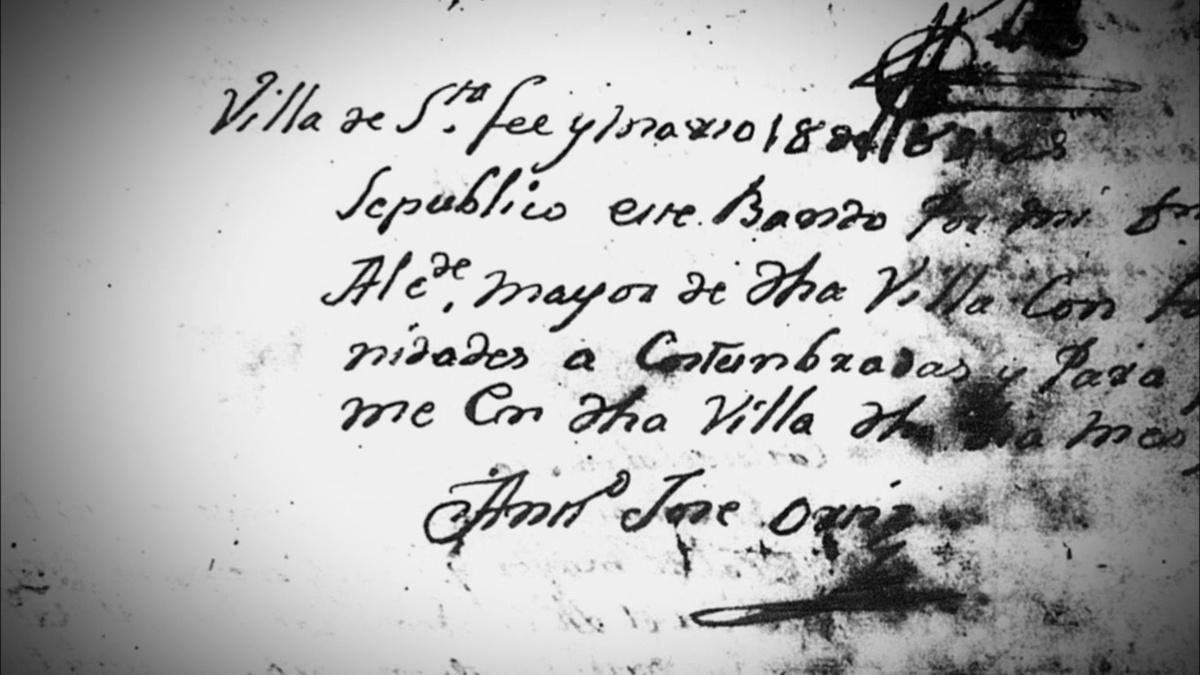 Villa de S.ta fee y Marzo 18 de
Se publico este Bando Por mi
Alc.de mayor de dha Villa Con
nidades a Costunbradas y Para
me En dha Villa dho dia mes
Antto Jose Ortiz